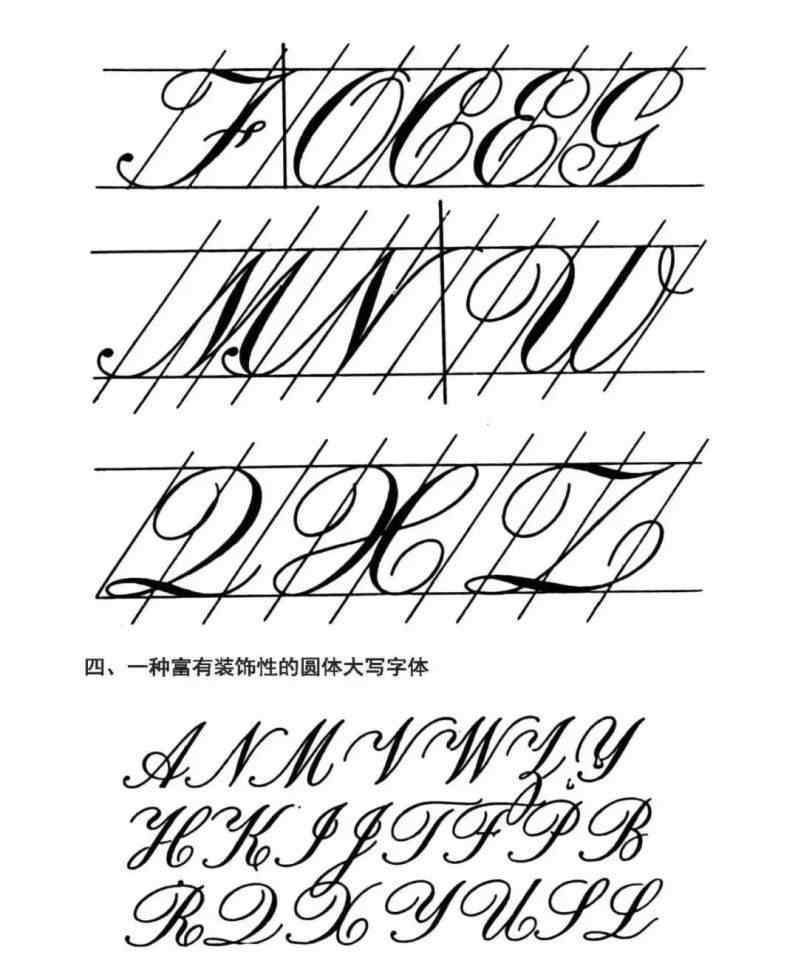 F O C E G
M N U
Q X Z
四、一种富有装饰性的圆体大写字体
A N M V W Z Y
H K I J T F P B
R Q X Y U S L